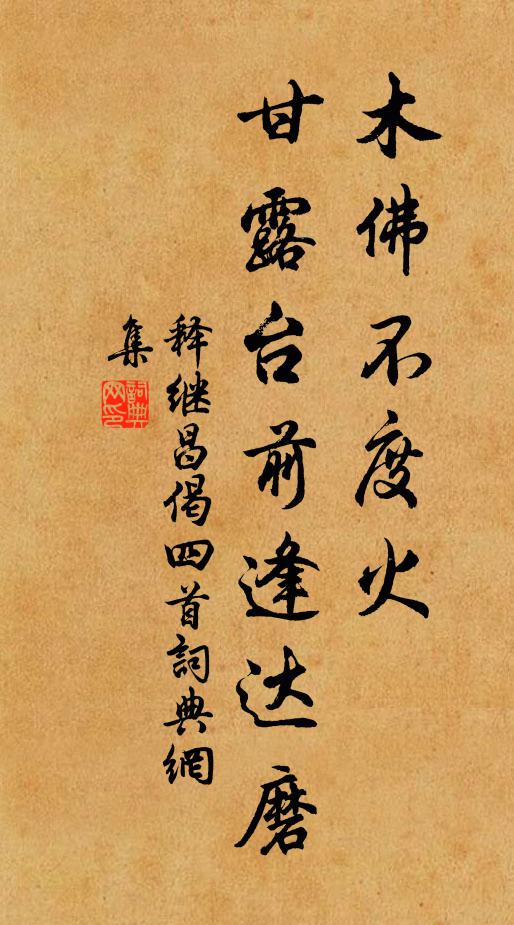 木佛不度火
甘露台前逢达磨
释继昌偈四首詞典網
集
詞典
网印